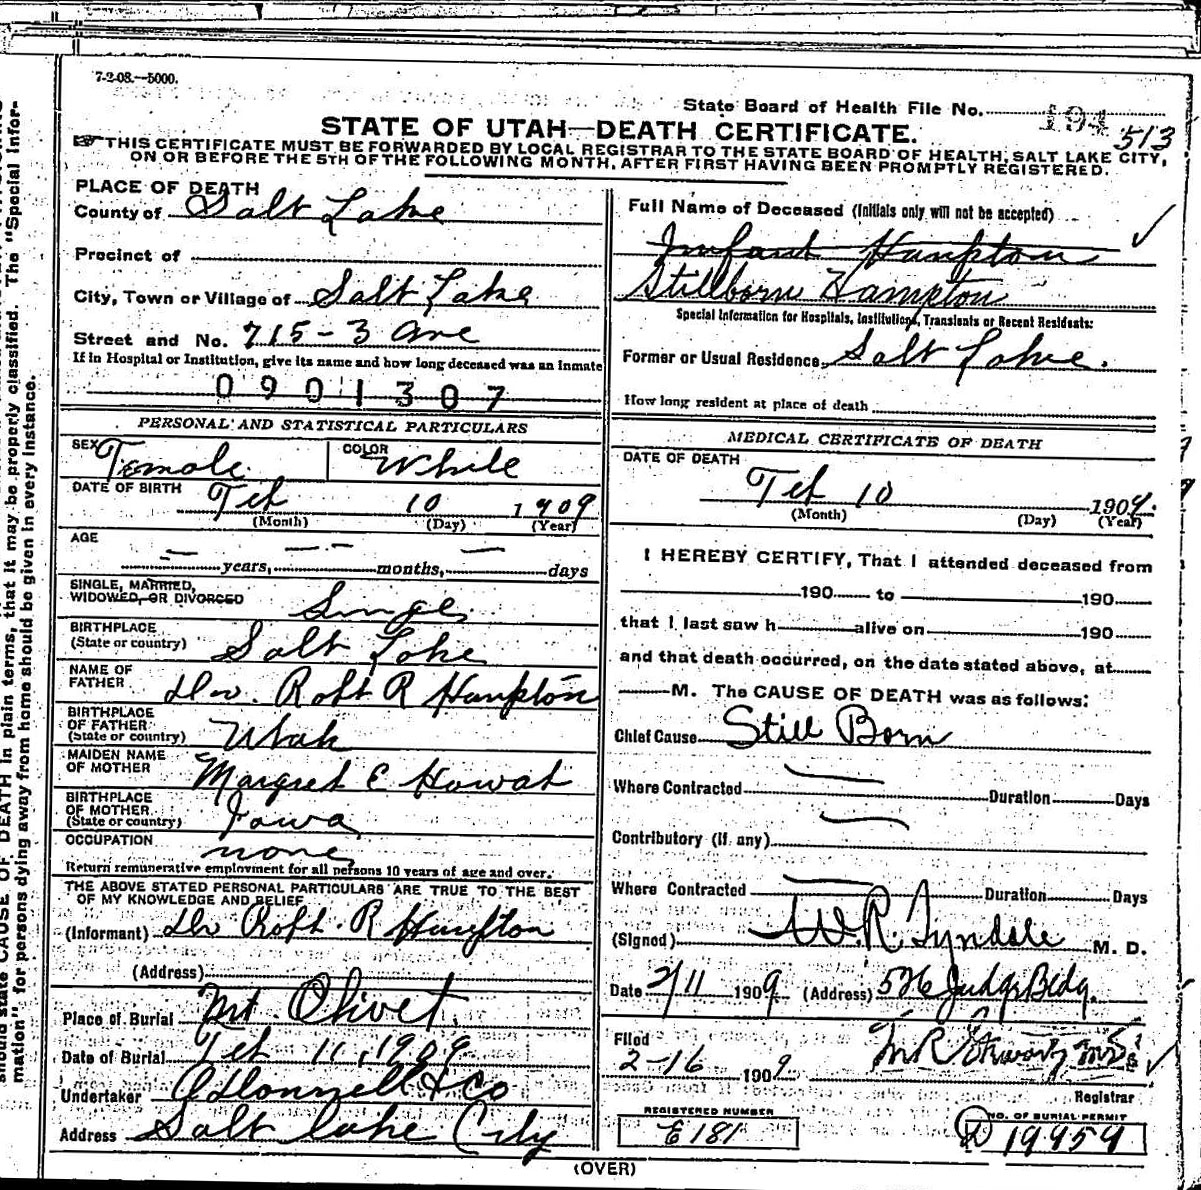 7-2-08.—5000.
State Board of Health File No. 194 513
STATE OF UTAH—DEATH CERTIFICATE.
THIS CERTIFICATE MUST BE FORWARDED BY LOCAL REGISTRAR TO THE STATE BOARD OF HEALTH, SALT LAKE CITY,
ON OR BEFORE THE 5TH OF THE FOLLOWING MONTH, AFTER FIRST HAVING BEEN PROMPTLY REGISTERED.
PLACE OF DEATH
County of Salt Lake
Precinct of
City, Town or Village of Salt Lake
Street and No. 715-3 Ave
If in Hospital or Institution, give its name and how long deceased was an inmate
0901307
PERSONAL AND STATISTICAL PARTICULARS
SEX Female COLOR White
DATE OF BIRTH Feb 10 1909
(Month) (Day) (Year)
AGE
— years, — — months, — days
SINGLE, MARRIED,
WIDOWED, OR DIVORCED Single
BIRTHPLACE
(State or country) Salt Lake
NAME OF
FATHER Dr. Robt R Hampton
BIRTHPLACE
OF FATHER
(State or country) Utah
MAIDEN NAME
OF MOTHER Margret E Howat
BIRTHPLACE
OF MOTHER
(State or country) Iowa
OCCUPATION none
Return remunerative employment for all persons 10 years of age and over.
THE ABOVE STATED PERSONAL PARTICULARS ARE TRUE TO THE BEST
OF MY KNOWLEDGE AND BELIEF
(Informant) Dr Robt. R Hampton
(Address)
Place of Burial Mt Olivet
Date of Burial Feb 11, 1909
Undertaker O'Donnell & Co
Address Salt Lake City
Full Name of Deceased (Initials only will not be accepted)
Infant Hampton
Stillborn Hampton
Special Information for Hospitals, Institutions, Transients or Recent Residents:
Former or Usual Residence Salt Lake.
How long resident at place of death
MEDICAL CERTIFICATE OF DEATH
DATE OF DEATH
Feb 10 1909.
(Month) (Day) (Year)
I HEREBY CERTIFY, That I attended deceased from
190 to 190
that I last saw h alive on 190
and that death occurred, on the date stated above, at
M. The CAUSE OF DEATH was as follows:
Chief Cause Still Born
Where Contracted — Duration Days
Contributory (if any) —
Where Contracted — Duration Days
(Signed) W.R. Tyndale M. D.
Date 2/11 1909. (Address) 526 Judge Bldg.
Filed
2-16 1909.
Registrar
REGISTERED NUMBER
E 181
NO. OF BURIAL PERMIT
19959
(OVER)
should state CAUSE OF DEATH in plain terms, that it may be properly classified. The "Special Infor-
mation" for persons dying away from home should be given in every instance.